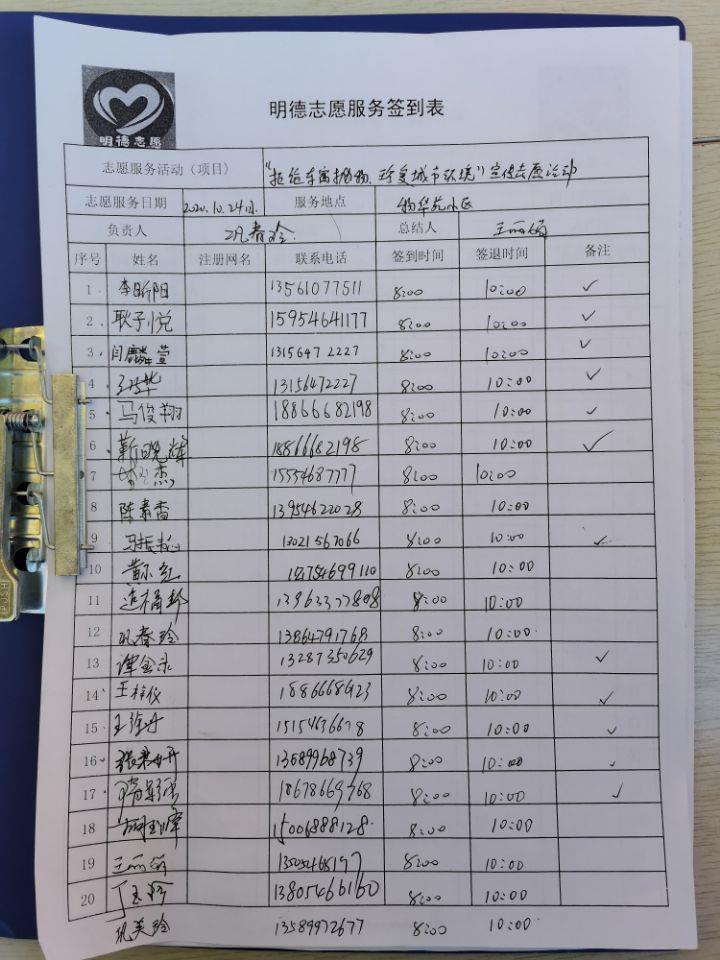 明德志愿
明德志愿服务签到表
志愿服务活动（项目） 宣传志愿活动
志愿服务日期 2020.10.24日 服务地点 物华苑小区
负责人 巩春玲 总结人 王丽娟
序号 姓名 注册网名 联系电话 签到时间 签退时间 备注
1 李昕阳 13561077511 8:00 10:00 ✓
2 耿子悦 15954641177 8:00 10:00 ✓
3 闫麟萱 13156472227 8:00 10:00 ✓
4 13156472227 8:00 10:00 ✓
5 马俊翔 18866682198 8:00 10:00 ✓
6 靳晓辉 18866682198 8:00 10:00 ✓
7 15554687777 8:00 10:00
8 陈素香 13954622028 8:00 10:00
9 13021567066 8:00 10:00 ✓
10 8:00 10:00
11 8:00 10:00
12 巩春玲 13864791768 8:00 10:00
13 谭金录 13287350629 8:00 10:00 ✓
14 王梓仪 8:00 10:00 ✓
15 8:00 10:00 ✓
16 13589968739 8:00 10:00 ✓
17 18678669768 8:00 10:00 ✓
18 15006888128 8:00 10:00
19 王丽娟 8:00 10:00
20 13805466160 8:00 10:00
巩美玲 13589972677 8:00 10:00
PUSH